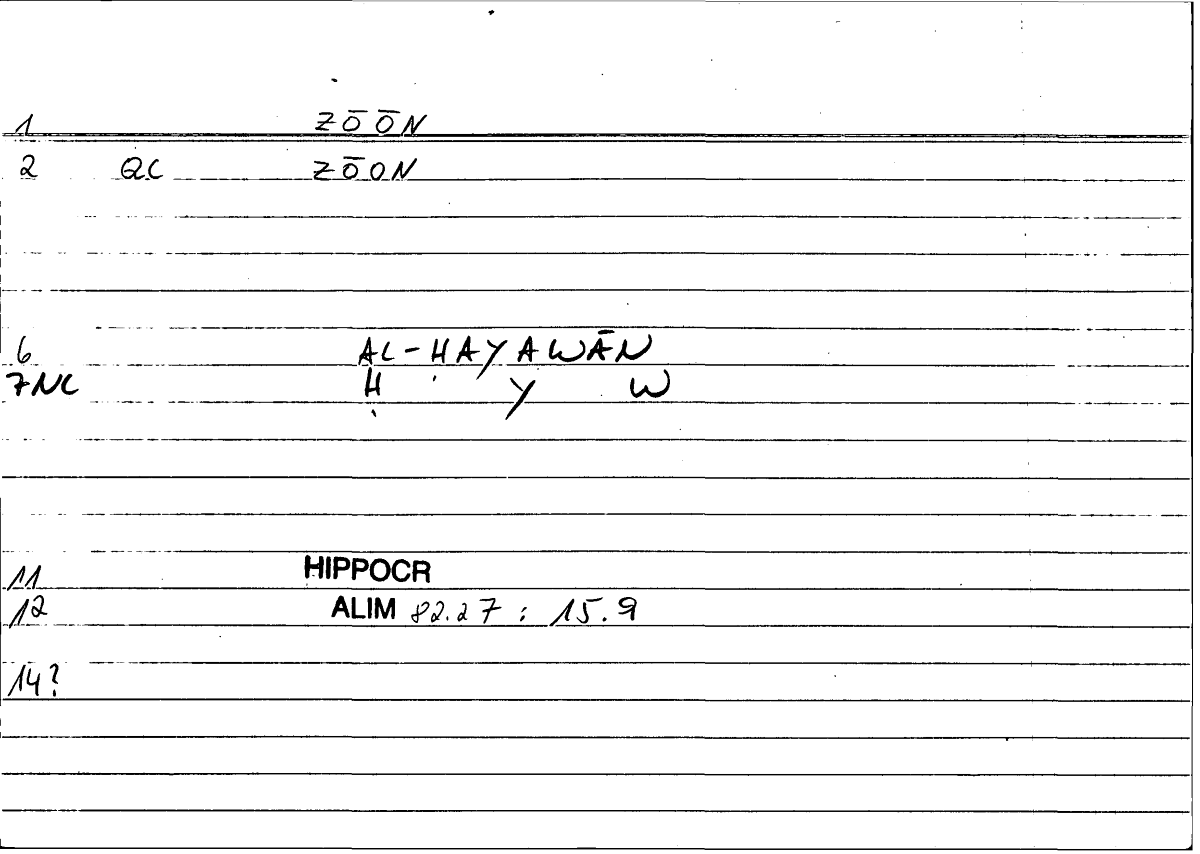 1 ZŌŌN
2 QC ZŌON
6 AL-ḤAYAWĀN
7NC Ḥ Y W
11 HIPPOCR
12 ALIM 82.27 : 15.9
14?